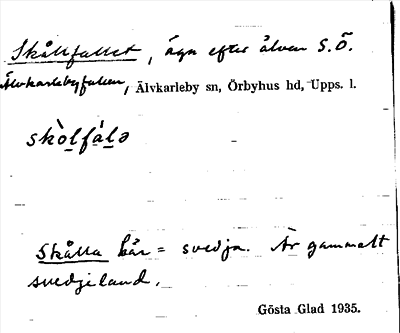 Skållfallet, äga efter älven S.Ö.
Älvkarlebyfallen, Älvkarleby sn, Örbyhus hd, Upps. l.
skòlfálə
Skålla här = svedja. Är gammalt
svedjeland.
Gösta Glad 1935.